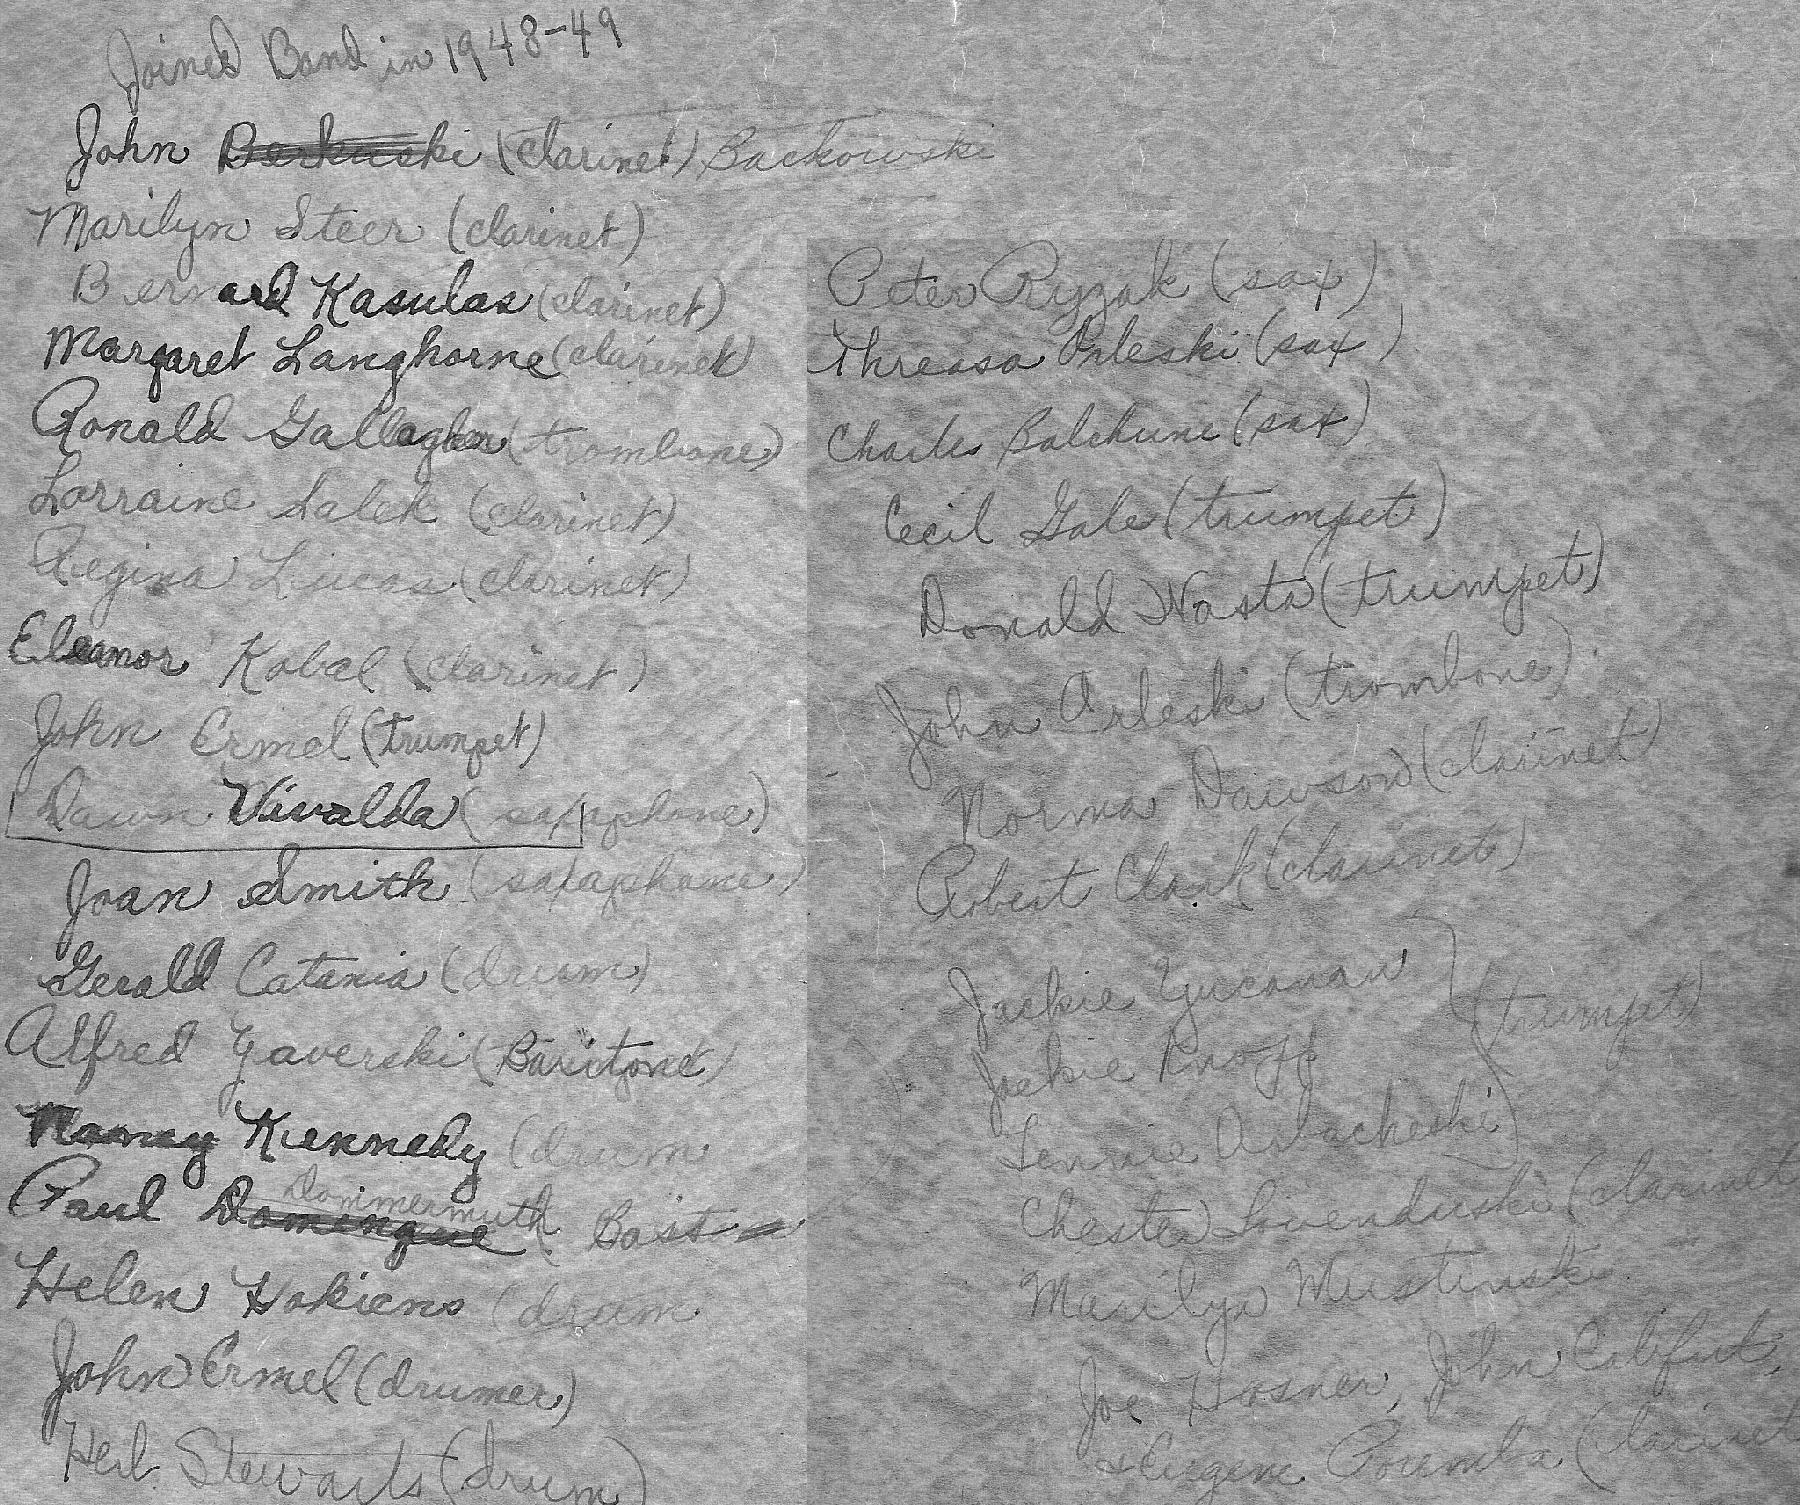 Joined Band in 1948-49
John Berkuski (clarinet) Backowski
Marilyn Steer (clarinet)
Bernard Kasulas (clarinet)
Margaret Langhorne (clarinet)
Ronald Gallagher (trombone)
Lorraine Salek (clarinet)
Regina Lucas (clarinet)
Eleanor Kobal (clarinet)
John Ermel (trumpet)
Dawn Vivalda (saxaphone)
Joan Smith (saxaphone)
Gerald Catania (drum)
Alfred Yaverski (Baritone)
Nancy Kennedy (drum
Dommermuth
Paul Domengue ( Bass
Helen Yokiens (drum
John Ermel (drumer)
Herb Stewarts (drum)
Peter Ryzak (sax)
Threasa Orleski (sax)
Charles Balchune (sax)
Cecil Gale (trumpet)
Donald Nasta (trumpet)
John Orleski (trombone)
Norma Dawson (clarinet)
Robert Clark (clarinet)
Jackie Yucanan
Jackie Knoff (trumpet)
Lennie Orbacheski
Chester Lovenduski (clarinet
Marilyn Mustinski
Joe Hosner, John
& Eugene Poremba (clarinet